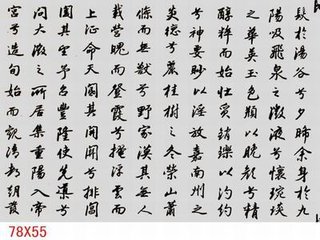 髮於湯谷兮夕晞余身於九
陽吸飛泉之微液兮懷琬琰
之華英玉色頩以脕顏兮精
醇粹而始壯質銷鑠以汋約
兮神要眇以淫放嘉南州之
炎德兮麗桂樹之冬榮山蕭
條而無獸兮野寂漠其無人
載營魄而登霞兮掩浮雲而
上征命天閽其開關兮排閶
闔其望予召豐隆使先導兮
問大微之所居集重陽入帝
宮兮造旬始而觀清都朝發
78X55